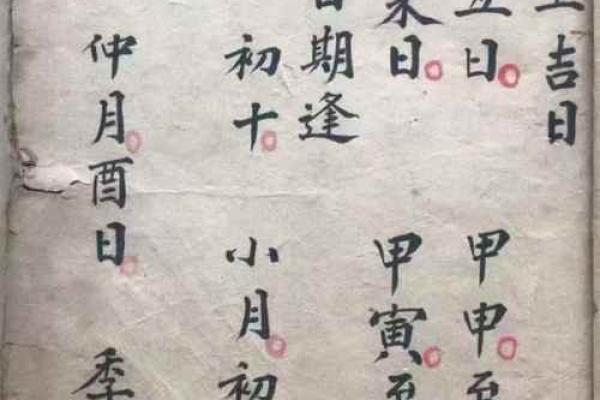 吉日
日 甲申至
日 甲寅至
期逢
初十 小月初
仲月酉日 季